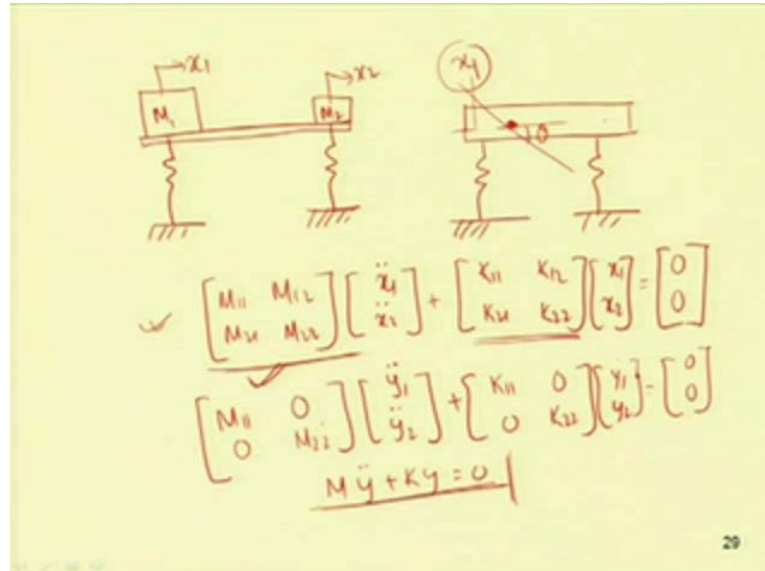 x1 x2 x1
M1 M2 θ
[M11 M12 M21 M22] [ẍ1 ẍ2] + [K11 K12 K21 K22] [x1 x2] = [0 0]
[M11 0 0 M22] [ÿ1 ÿ2] + [K11 0 0 K22] [y1 y2] = [0 0]
Mÿ + Ky = 0
29